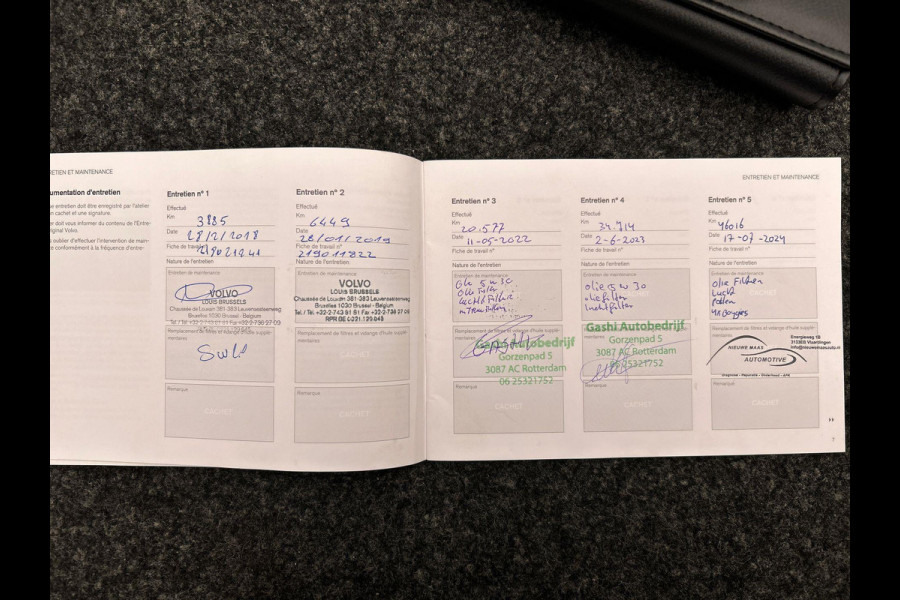 ETIEN ET MAINTENANCE
umentation d'entretien
e entretien doit être enregistré par l'atelier
un cachet et une signature.
er doit vous informer du contenu de l'Entre-
riginal Volvo.
oublier d'effectuer l'intervention de main-
e conformément à la fréquence d'entre-
Entretien n° 1
Effectué
Km 3885
Date 28/12/2018
Fiche de travail n°
Nature de l'entretien
Entretien de maintenance
VOLVO
LOUIS BRUSSELS
Chaussée de Louvain 381-383 Leuvensesteenweg
Bruxelles 1030 Brussel - Belgium
Remplacement de filtres et vidange d'huile supplé-
mentaires
Remarque
CACHET
Entretien n° 2
Effectué
Km 6449
Date 28/01/2019
Fiche de travail n°
219011822
Nature de l'entretien
Entretien de maintenance
VOLVO
LOUIS BRUSSELS
Chaussée de Louvain 381-383 Leuvensesteenweg
Bruxelles 1030 Brussel - Belgium
Remplacement de filtres et vidange d'huile supplé-
mentaires
CACHET
Remarque
CACHET
ENTRETIEN ET MAINTENANCE
Entretien n° 3
Effectué
Km 20.577
Date 11-05-2022
Fiche de travail n°
Nature de l'entretien
Entretien de maintenance
Olie 5 w 30
Remplacement de filtres et vidange d'huile supplé-
mentaires
Gashi Autobedrijf
Gorzenpad 5
3087 AC Rotterdam
06 25321752
Remarque
CACHET
Entretien n° 4
Effectué
Km 34.714
Date 2-6-2023
Fiche de travail n°
Nature de l'entretien
Entretien de maintenance
olie 5 w 30
oliefilter
luchtfilter
Gashi Autobedrijf
Gorzenpad 5
3087 AC Rotterdam
06 25321752
Remarque
CACHET
Entretien n° 5
Effectué
Km 46016
Date 17-07-2024
Fiche de travail n°
Nature de l'entretien
Entretien de maintenance
olie Filteren
Lucht
pollen
4x Bougies
Remplacement de filtres et vidange d'huile supplé-
mentaires
NIEUWE MAAS
AUTOMOTIVE
Vlaardingen
Remarque
CACHET
7